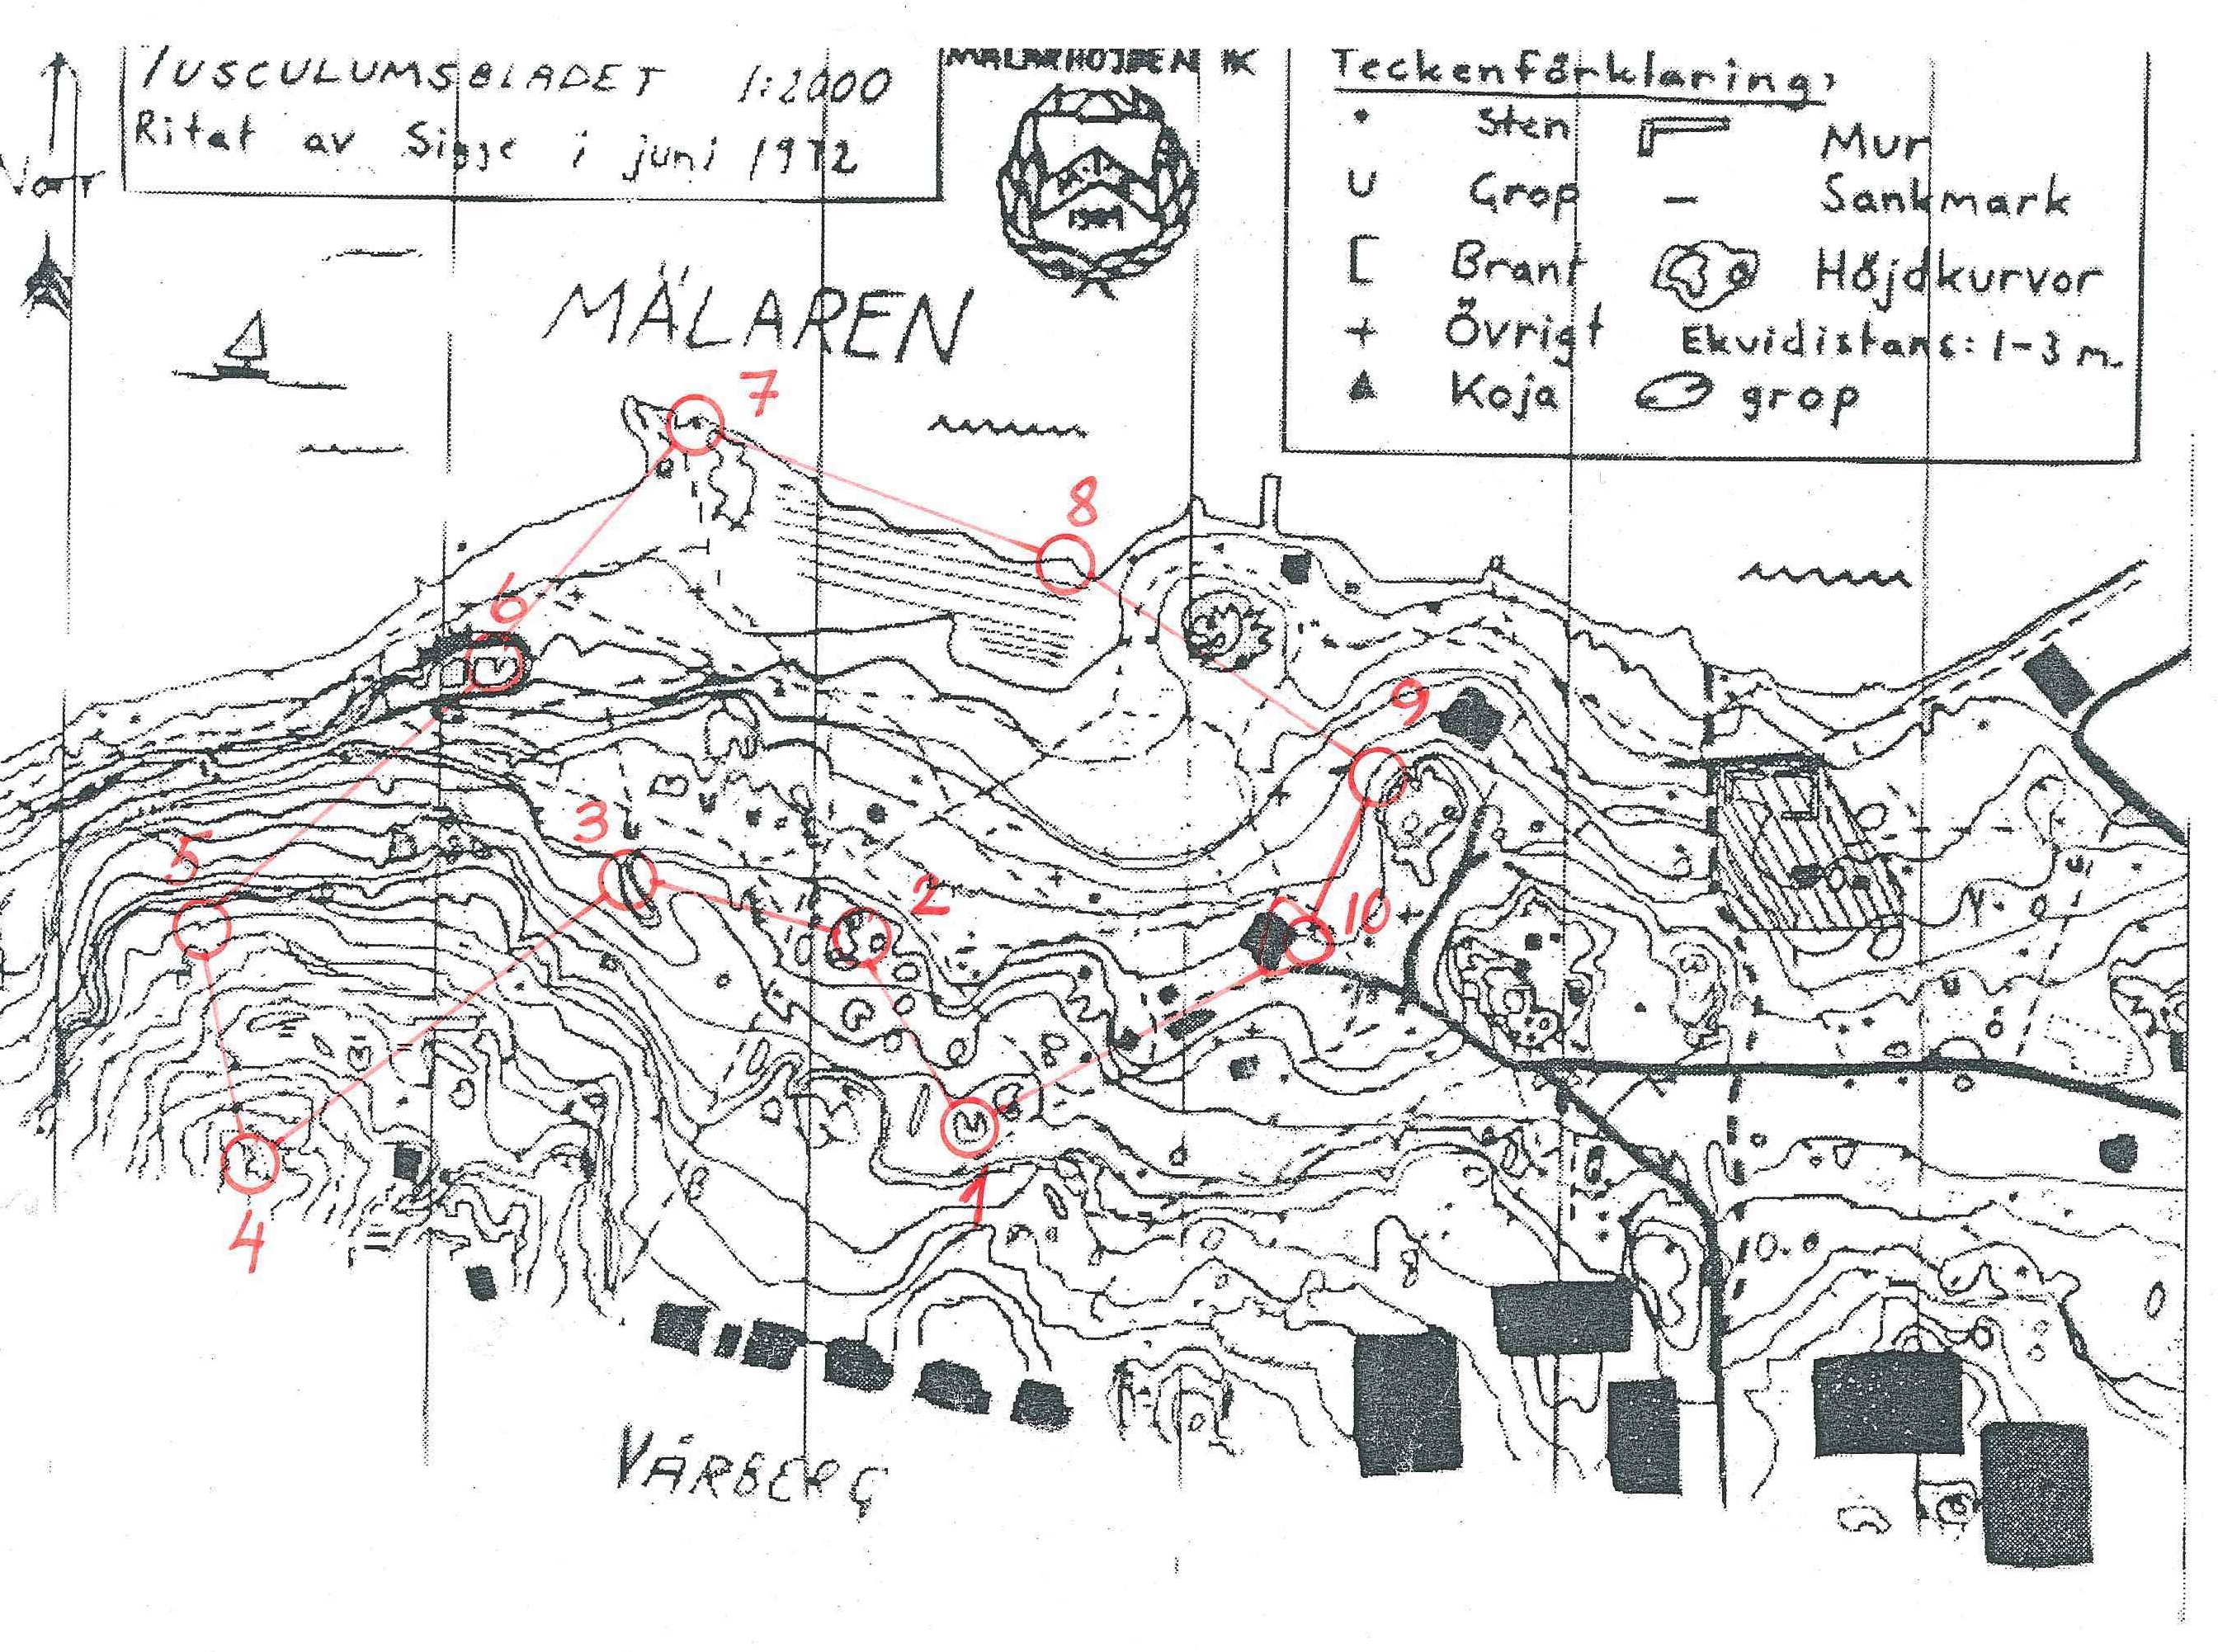 TUSCULUMSBLADET 1:2000
Ritat av Sigge i juni 1972
Norr
MÄLARHÖJDEN IK
Teckenförklaring:
Sten
Mur
Grop
Sankmark
Brant
Höjdkurvor
Övrigt
Ekvidistans: 1-3 m
Koja
grop
MÄLAREN
7
8
6
9
5
3
2
10
1
4
VÅRBERG